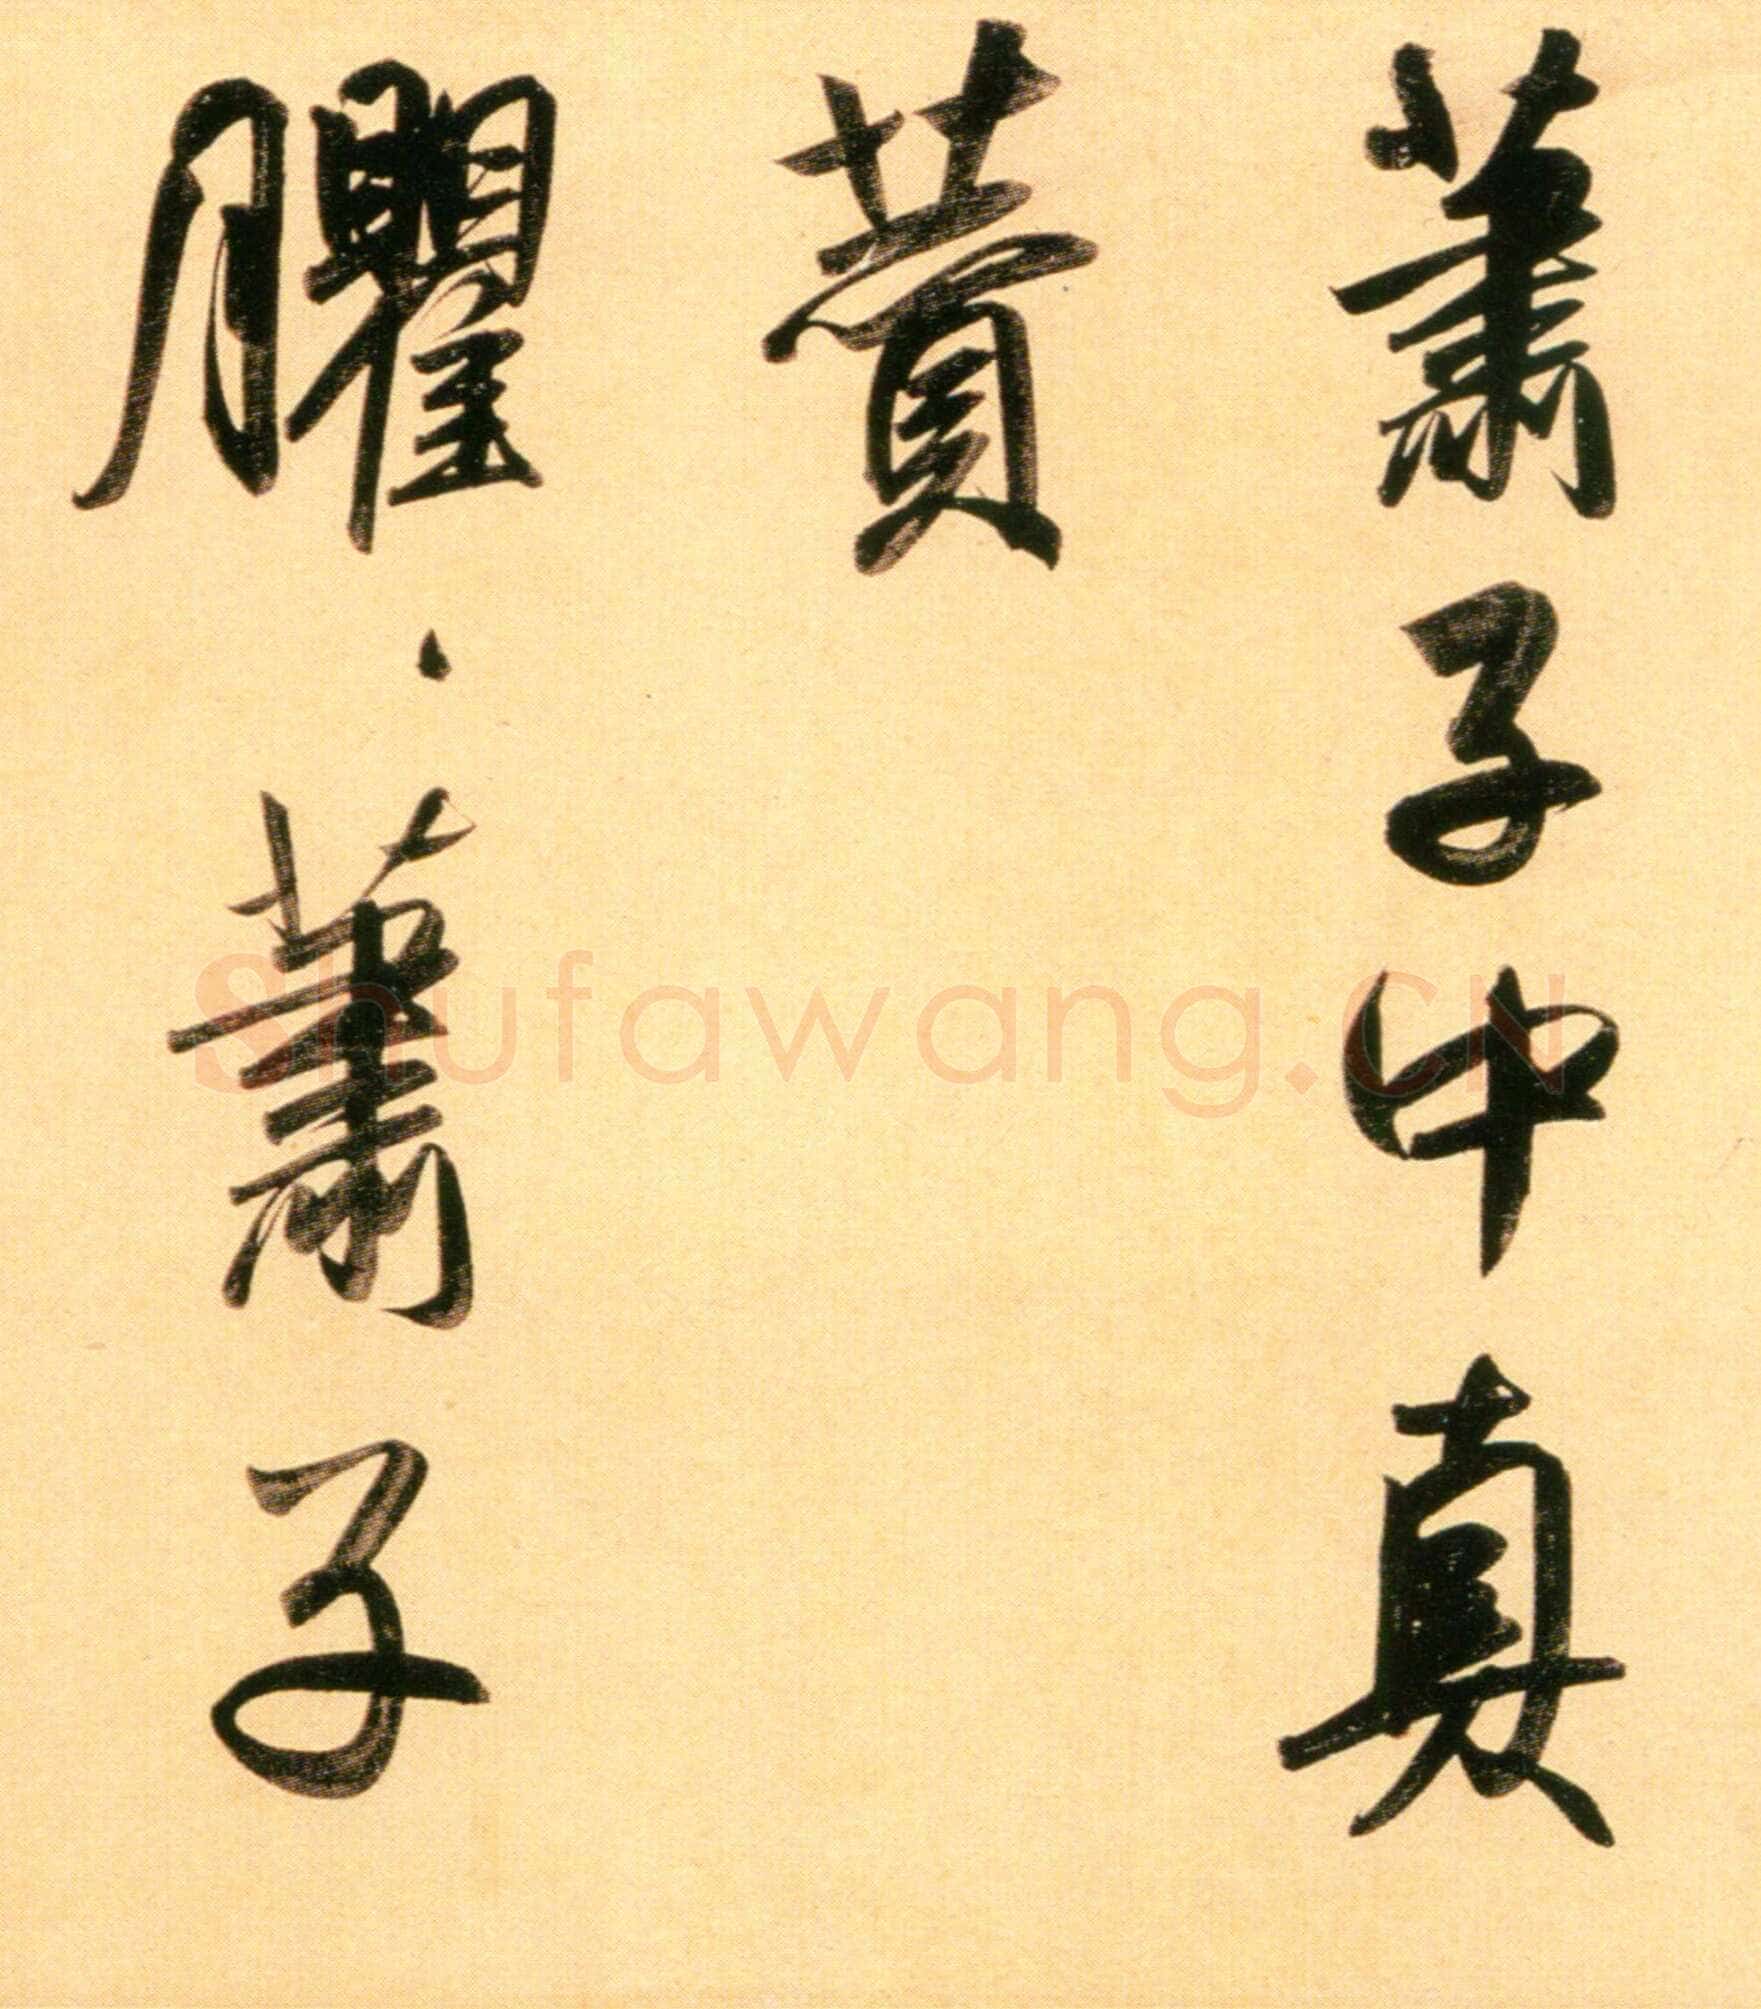 蕭子中真
贊
臞、蕭子
Shufawang.CN